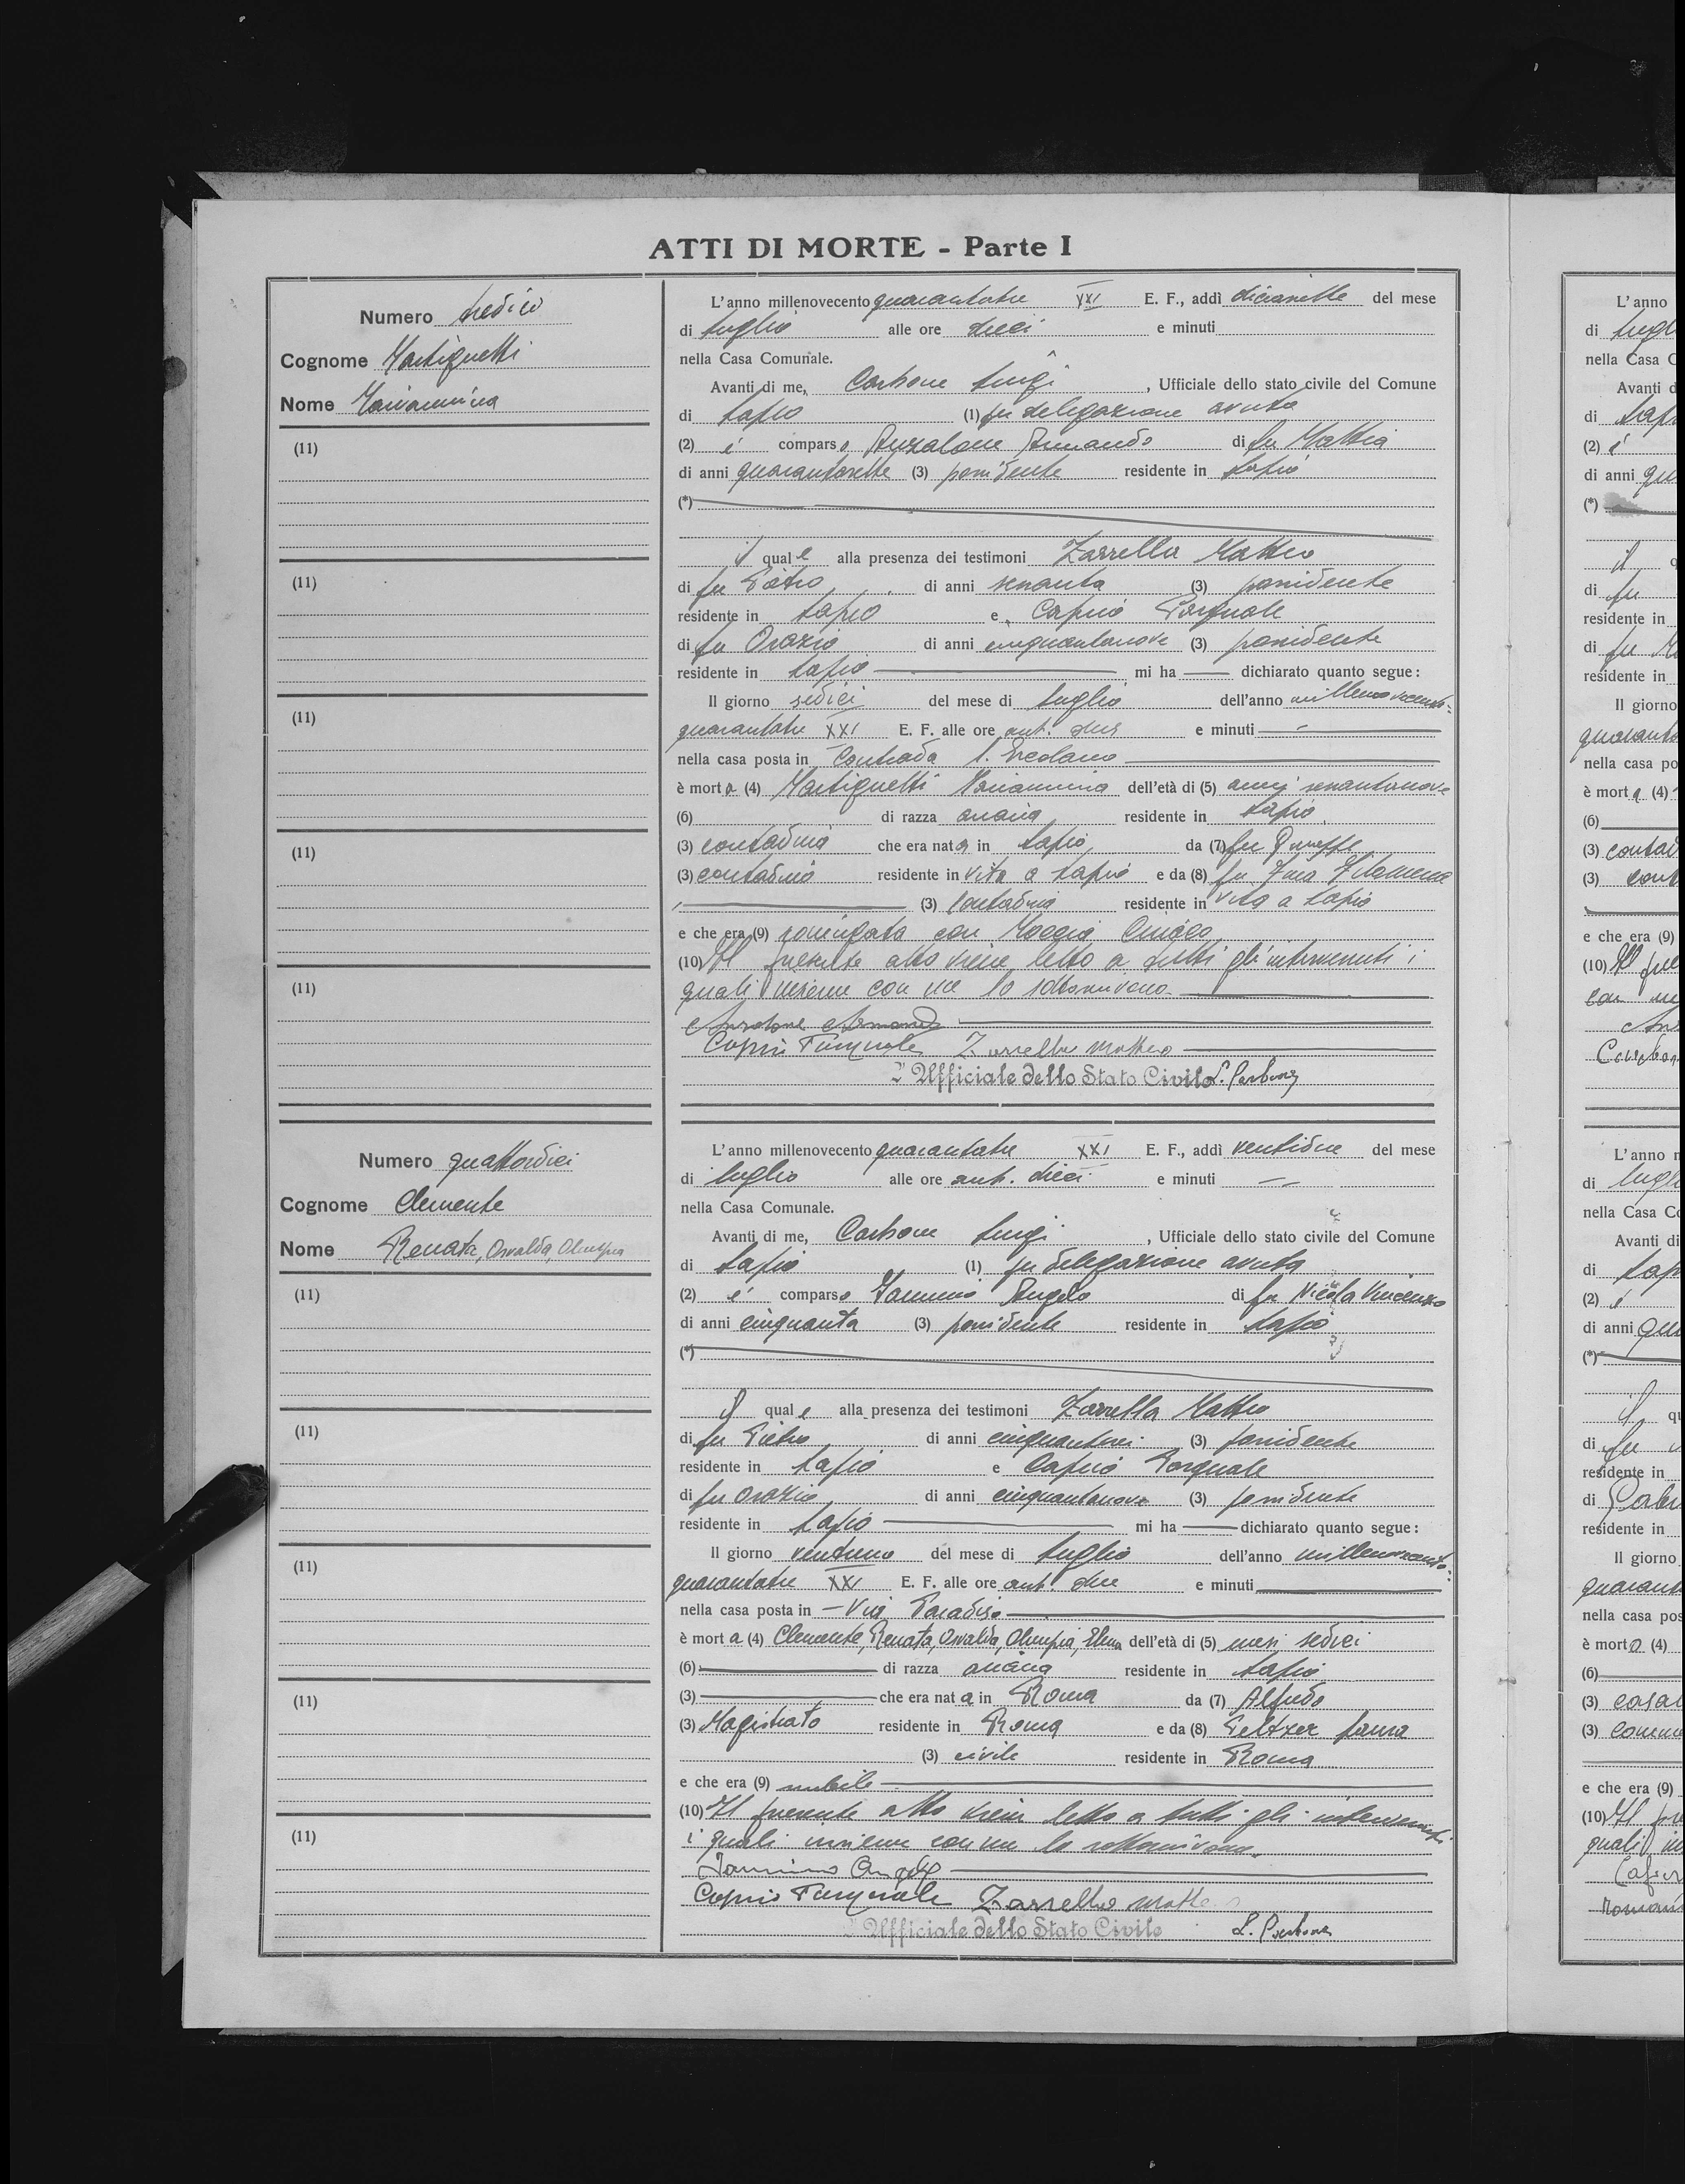 ATTI DI MORTE - Parte I
Numero tredici
Cognome Martignetti
Nome Mariannina
(11)
(11)
(11)
(11)
(11)
L'anno millenovecento quarantatre XXI E. F., addì diciassette del mese
di luglio alle ore dieci e minuti
nella Casa Comunale.
Avanti di me, Carbone Luigi, Ufficiale dello stato civile del Comune
di Lapio (1) per delegazione avuta
(2) è comparso Anzalone Armando di fu Mattia
di anni quarantasette (3) possidente residente in Lapio
(*)
il quale alla presenza dei testimoni Zarrella Matteo
di fu Pietro di anni sessanta (3) possidente
residente in Lapio e Caprio Pasquale
di fu Orazio di anni cinquantanove (3) possidente
residente in Lapio mi ha dichiarato quanto segue:
Il giorno sedici del mese di luglio dell'anno millenovecento=
quarantatre XXI E. F. alle ore ant. due e minuti
nella casa posta in Contrada S. Ercolano
è morta (4) Martignetti Mariannina dell'età di (5) anni sessantanove
(6) di razza ariana residente in Lapio
(3) contadina che era nata in Lapio, da (7) fu Giuseppe
(3) contadino residente in vita a Lapio e da (8) fu Filomena
(3) contadina residente in vita a Lapio
e che era (9) coniugata con Moccia Ciriaco
(10) Il presente atto viene letto a tutti gli intervenuti i
quali insieme con me lo sottoscrivono.
Anzalone Armando
Caprio Pasquale Zarrella Matteo
L'Ufficiale dello Stato Civile L. Carbone
Numero quattordici
Cognome Clemente
Nome Renata, Osvalda, Olimpia
(11)
(11)
(11)
(11)
(11)
L'anno millenovecento quarantatre XXI E. F., addì ventidue del mese
di luglio alle ore ant. dieci e minuti
nella Casa Comunale.
Avanti di me, Carbone Luigi, Ufficiale dello stato civile del Comune
di Lapio (1) per delegazione avuta
(2) è comparso Iannino Angelo di fu Nicola Vincenzo
di anni cinquanta (3) possidente residente in Lapio
(*)
il quale alla presenza dei testimoni Zarrella Matteo
di fu Pietro di anni cinquantasei (3) possidente
residente in Lapio e Caprio Pasquale
di fu Orazio di anni cinquantanove (3) possidente
residente in Lapio mi ha dichiarato quanto segue:
Il giorno ventuno del mese di luglio dell'anno millenovecento=
quarantatre XXI E. F. alle ore ant. due e minuti
nella casa posta in Via Paradiso
è morta (4) Clemente, Renata, Osvalda, Olimpia, Elena dell'età di (5) mesi sedici
(6) di razza ariana residente in Lapio
(3) che era nata in Roma da (7) Alfredo
(3) Magistrato residente in Roma e da (8) Peltzer Laura
(3) civile residente in Roma
e che era (9) nubile
(10) Il presente atto viene letto a tutti gli intervenuti
i quali insieme con me lo sottoscrivono.
Iannino Angelo
Caprio Pasquale Zarrella Matteo
L'Ufficiale dello Stato Civile L. Carbone
L'anno
di lugl
nella Casa C
Avanti d
di Lap
(2) è
di anni qu
(*)
il
di fu
residente in
di fu
residente in
Il giorno
quaranta
nella casa po
è morta (4)
(6)
(3) contad
(3) cont
e che era (9)
(10) Il pre
con me
Carbon
L'anno
di lugl
nella Casa Co
Avanti di
di Lap
(2) è
di anni qu
(*)
il qu
di fu
residente in
di
residente in
Il giorno
quarant
nella casa pos
è morto (4)
(6)
(3) casal
(3) comme
e che era (9)
(10) Il pre
quali in